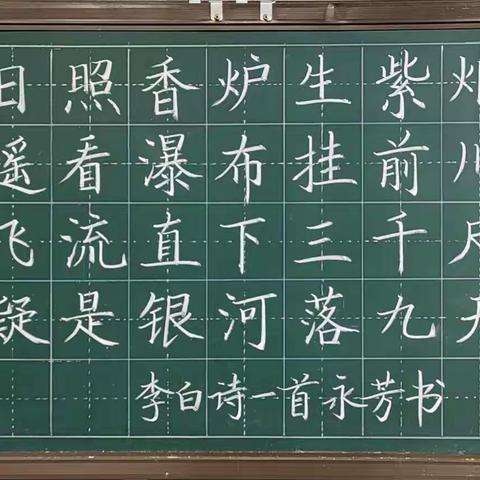 日照香炉生紫烟
遥看瀑布挂前川
飞流直下三千尺
疑是银河落九天
李白诗一首永芳书